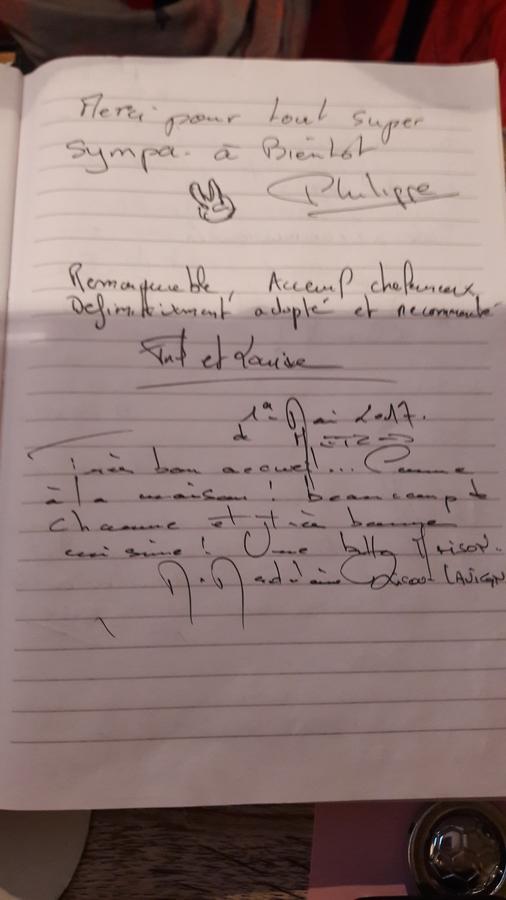 Merci pour tout super
sympa. à Bientot
Philippe
Remarquable, Accueil chaleureux,
Définitivement adopté et recommandé
et Louise
1er Mai 2017.
Très bon accueil... Comme
à la maison ! beaucoup de
charme et très bonne
cuisine ! Une belle maison.